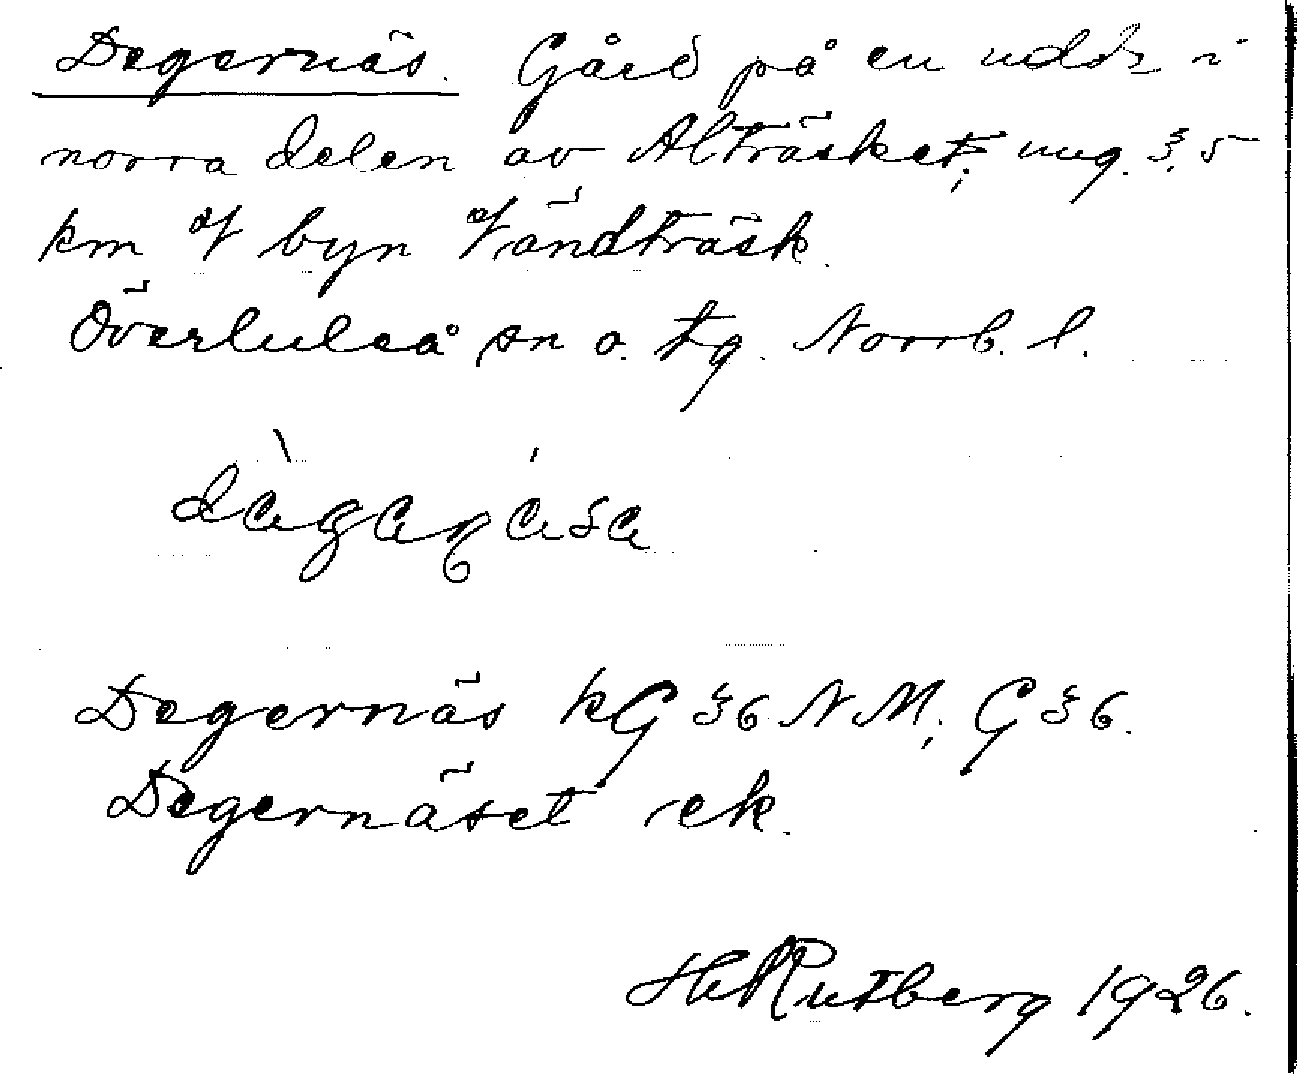 Degernäs. Gård på en udde i
norra delen av Alträsket, ung. 3,5
km V byn Vändträsk.
Överluleå sn o. tg. Norrb. l.
Degernäs kG 36 NM; G 36.
Degernäset ek.
H Rutberg 1926.